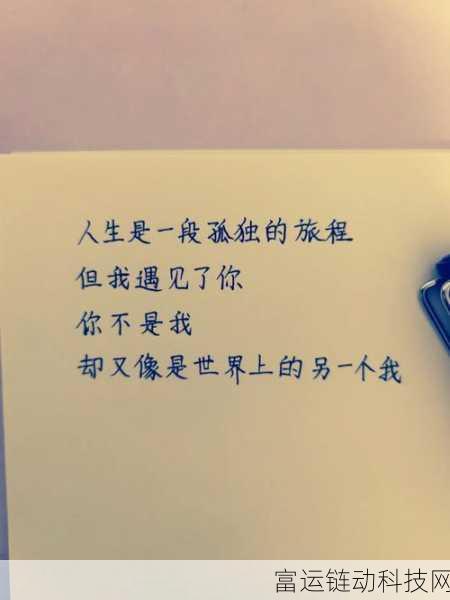 人生是一段孤独的旅程
但我遇见了你
你不是我
却又像是世界上的另一个我
富运链动科技网